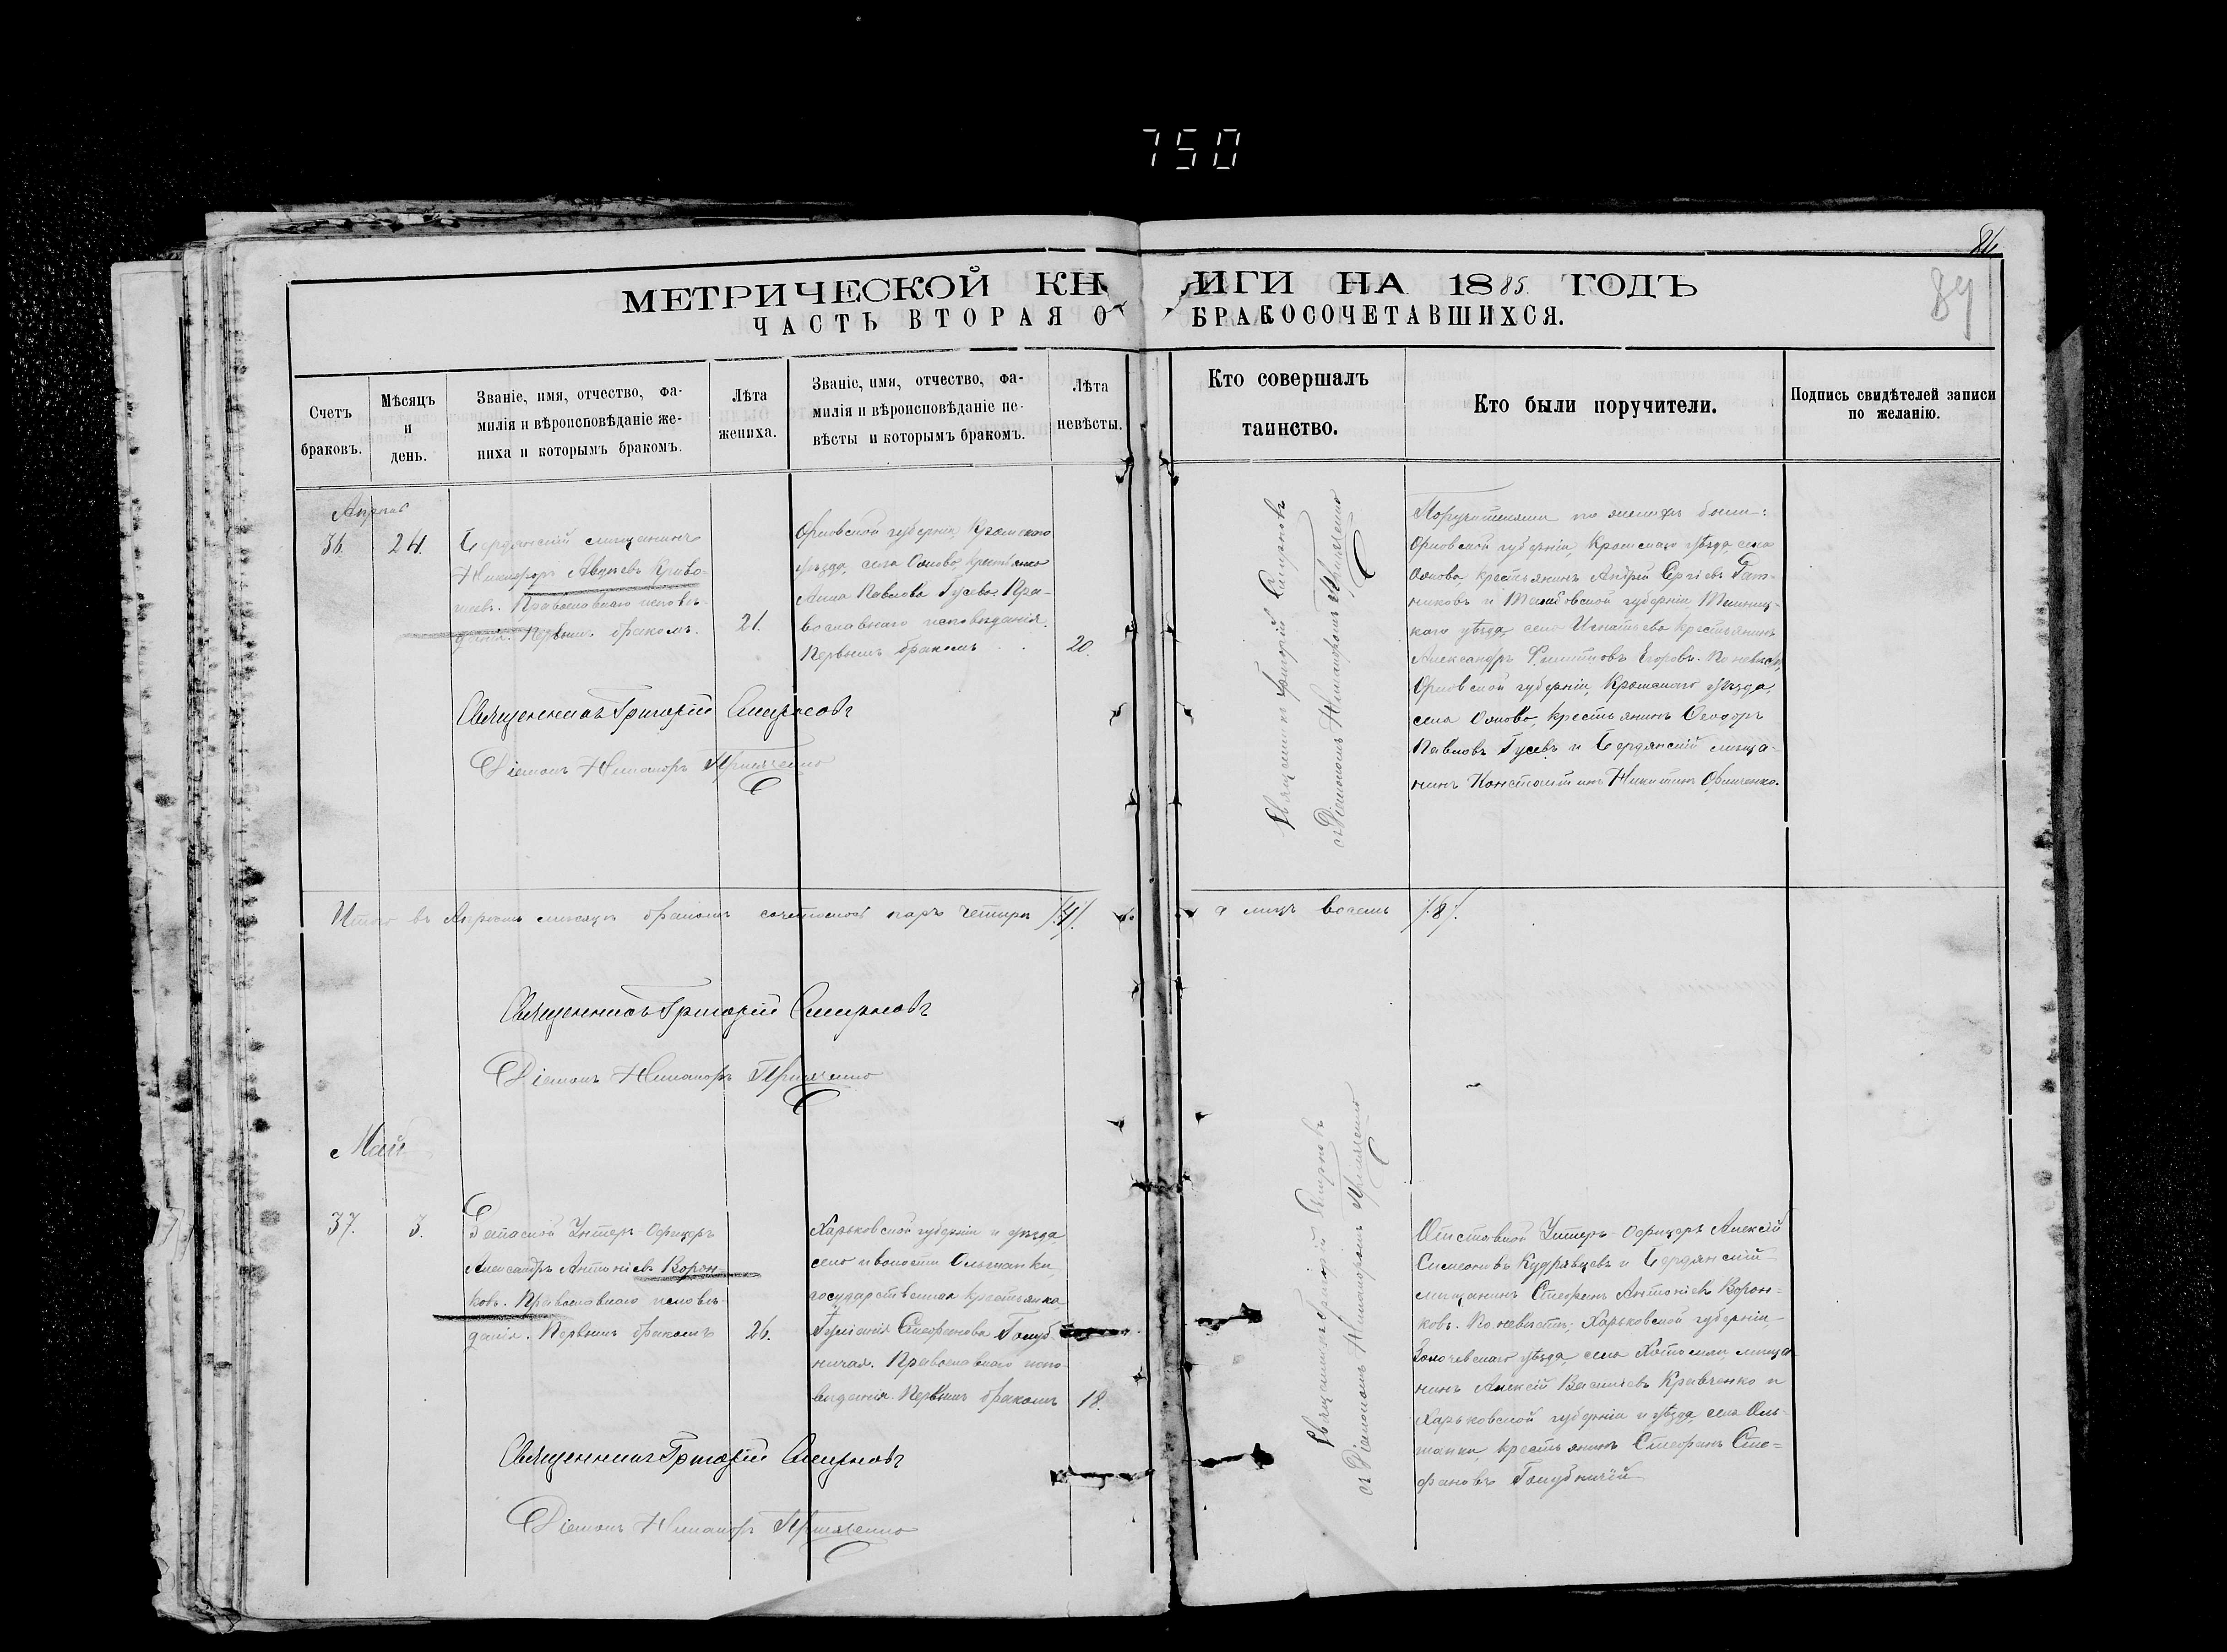 750
84
89
МЕТРИЧЕСКОЙ КНИГИ НА 1885 ГОДЪ
ЧАСТЬ ВТОРАЯ О БРАКОСОЧЕТАВШИХСЯ.
Счетъ браковъ.
Мѣсяцъ и день.
Званіе, имя, отчество, фа-
милія и вѣроисповѣданіе же-
ниха и которымъ бракомъ.
Лѣта жениха.
Званіе, имя, отчество, фа-
милія и вѣроисповѣданіе не-
вѣсты и которымъ бракомъ.
Лѣта невѣсты.
Кто совершалъ таинство.
Кто были поручители.
Подпись свидѣтелей записи
по желанію.
Апрѣль
36. 24.
Бердянскій мѣщанинъ
Никифоръ Авдѣевъ Криво-
шеевъ. Православнаго исповѣ-
данія. Первымъ бракомъ.
21.
Орловской губерніи, Кромскаго
уѣзда, села крестьянка
Анна Павлова Гусева. Пра-
вославнаго исповѣданія.
Первымъ бракомъ
20.
Священникъ Григорій Смирновъ
съ Діакономъ Никаноромъ
Поручителями по женихѣ были:
Орловской губерніи, Кромскаго уѣзда, села
крестьянинъ Андрей Сергіевъ
и Тамбовской губерніи
уѣзда, села Игнатьева крестьянинъ
Александръ Филипповъ Егоровъ. По невѣстѣ,
Орловской губерніи, Кромскаго уѣзда,
села крестьянинъ Ѳеодоръ
Павловъ Гусевъ и Бердянскій мѣща-
нинъ Константинъ Никитинъ
Священникъ Григорій Смирновъ
Діаконъ Никаноръ
Итого въ Апрѣлѣ мѣсяцѣ бракомъ сочеталось паръ четыре /4/. а лицъ восемь /8/.
Священникъ Григорій Смирновъ
Діаконъ Никаноръ
Май
37. 3.
Запасной Унтеръ-Офицеръ
Александръ Антоніевъ Ворон-
ковъ. Православнаго исповѣ-
данія. Первымъ бракомъ
26.
Харьковской губерніи и уѣзда,
села и волости Ольшанки,
государственная крестьянка,
Іуліанія Стефанова Голуб-
ничая. Православнаго испо-
вѣданія. Первымъ бракомъ
18.
Священникъ Григорій Смирновъ
съ Діакономъ Никаноромъ
Отставной Унтеръ-Офицеръ Алексій
Симеоновъ Кудрявцевъ и Бердянскій
мѣщанинъ Стефанъ Антоніевъ Ворон-
ковъ. По невѣстѣ; Харьковской губерніи,
Золочевскаго уѣзда, села мѣща-
нинъ Алексій Васильевъ Кравченко и
Харьковской губерніи и уѣзда, села Оль-
шанки, крестьянинъ Стефанъ Сте-
фановъ Голубничій
Священникъ Григорій Смирновъ
Діаконъ Никаноръ